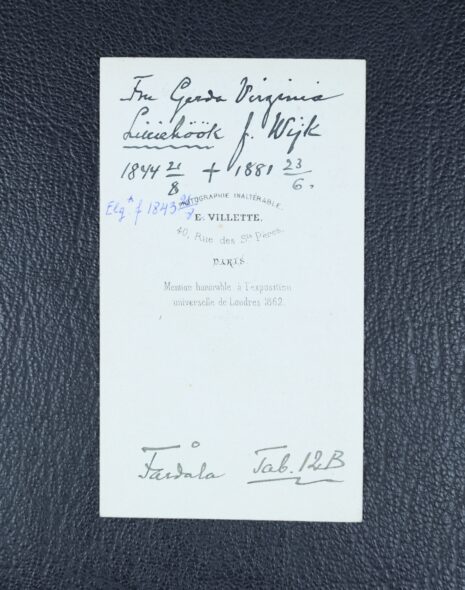 Fru Gerda Virginia
Lilliehöök f. Wijk
1844 21/8 + 1881 23/6.
Elg* f 1843
PHOTOGRAPHIE INALTÉRABLE
E. VILLETTE,
40, Rue des Sts Pères,
PARIS
Mention honorable à l'exposition
universelle de Londres 1862.
Fårdala Tab. 12B